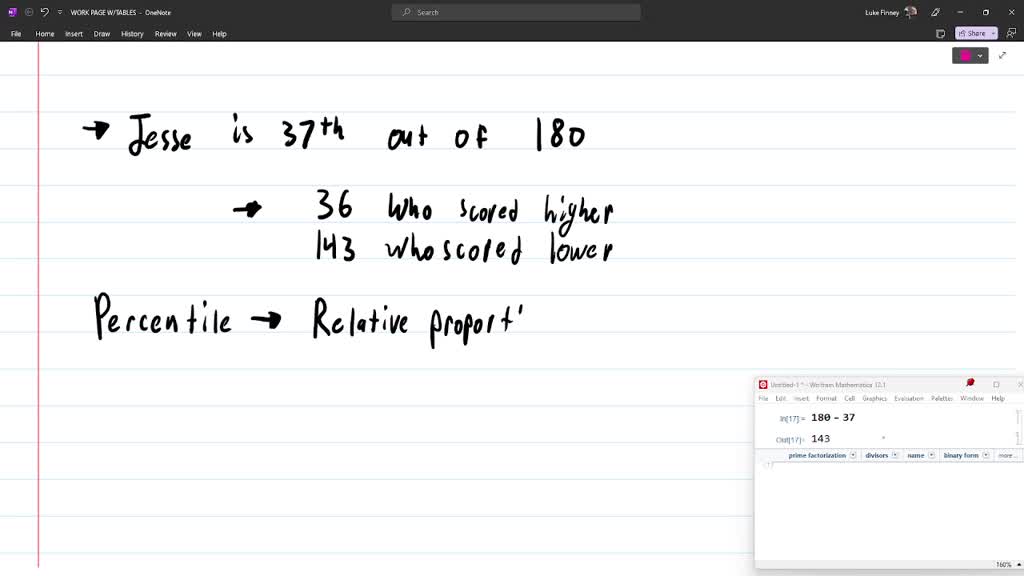 WORK PAGE W/TABLES - OneNote
Search
Luke Finney
File Home Insert Draw History Review View Help
Share
→ Jesse is 37th out of 180
→ 36 who scored higher
143 who scored lower
Percentile → Relative proport'
Untitled-1 * - Wolfram Mathematica 13.1
File Edit Insert Format Cell Graphics Evaluation Palettes Window Help
In[17]:= 180 - 37
Out[17]= 143
prime factorization divisors name binary form more...
160%